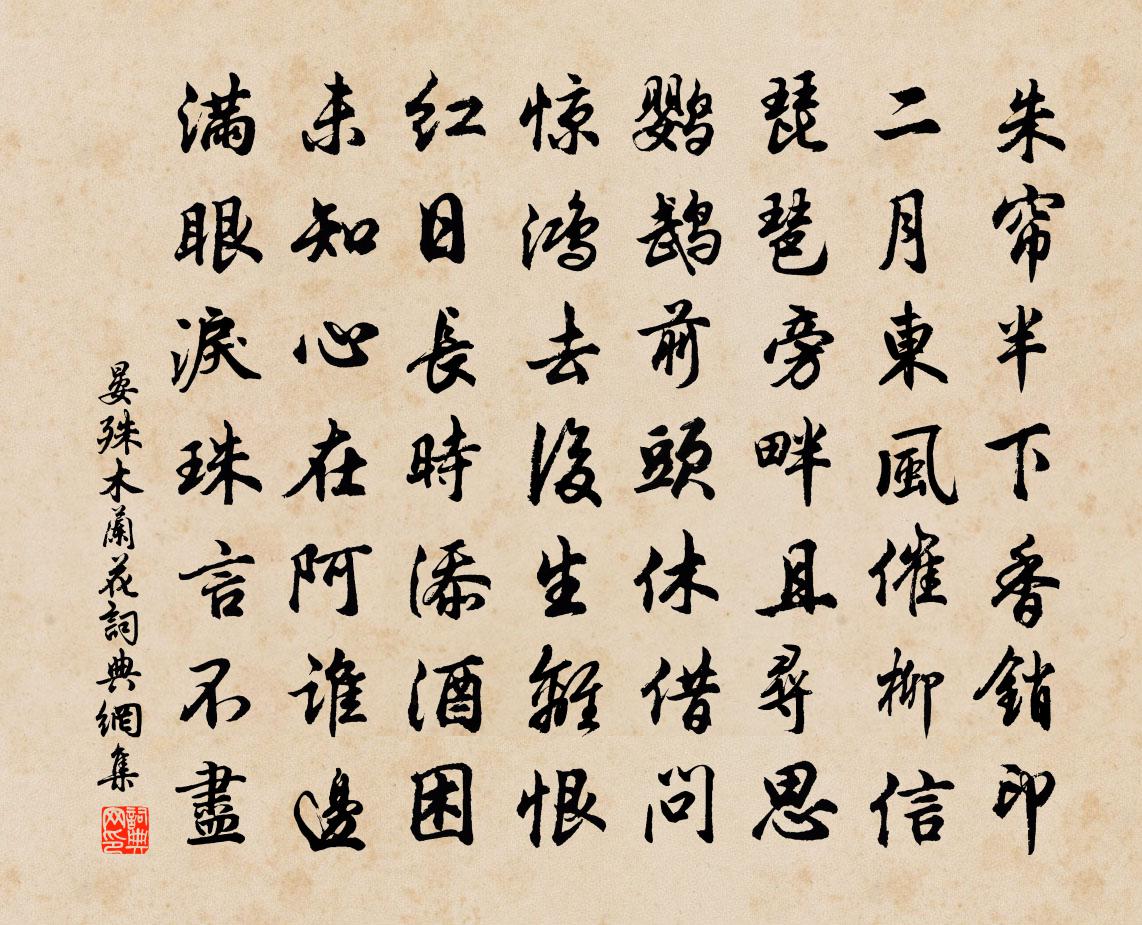 朱帘半下香銷印
二月東風催柳信
琵琶旁畔且尋思
鹦鹉前頭休借问
惊鸿去後生離恨
红日長時添酒困
未知心在阿谁邊
满眼淚珠言不盡
晏殊木蘭花詞典網集
詞典网印